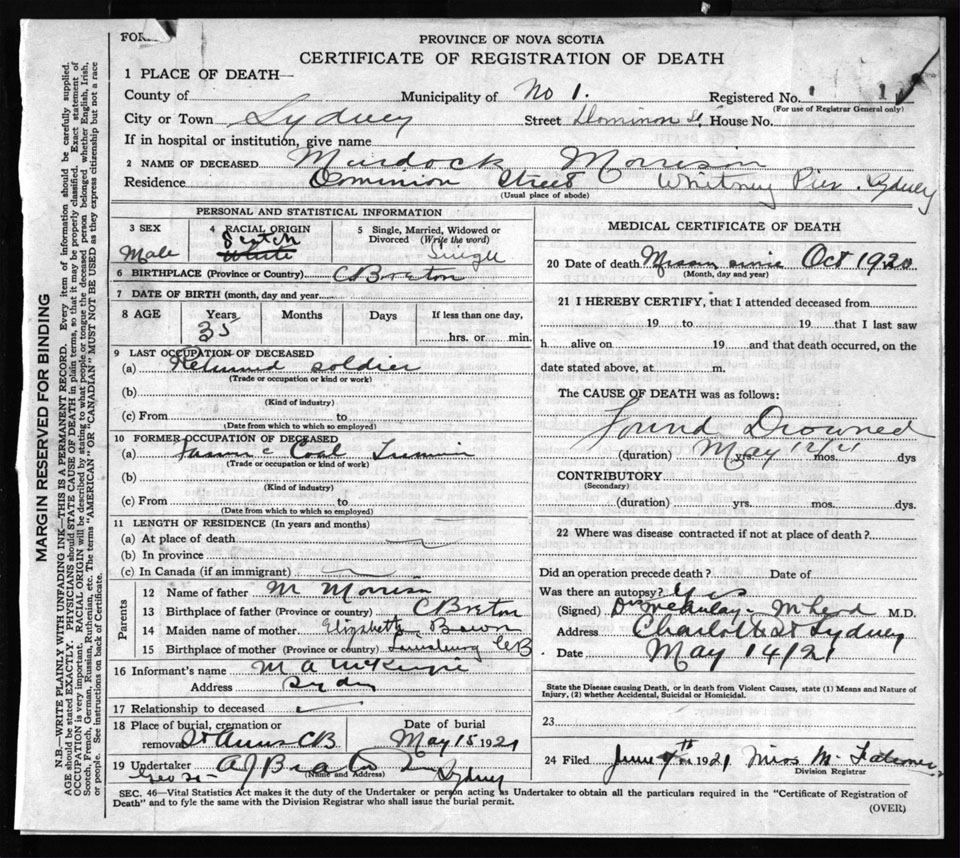 FOR
PROVINCE OF NOVA SCOTIA
CERTIFICATE OF REGISTRATION OF DEATH
1 PLACE OF DEATH—
County of Municipality of No 1. Registered No.
(For use of Registrar General only)
City or Town Sydney Street Dominion St. House No.
If in hospital or institution, give name
2 NAME OF DECEASED Murdock Morrison
Residence Dominion Street Whitney Pier. Sydney
(Usual place of abode)
PERSONAL AND STATISTICAL INFORMATION
3 SEX
Male
4 RACIAL ORIGIN
Scotch
White
5 Single, Married, Widowed or
Divorced (Write the word)
Single
6 BIRTHPLACE (Province or Country) C Breton
7 DATE OF BIRTH (month, day and year
8 AGE Years Months Days If less than one day,
35 hrs. or min.
9 LAST OCCUPATION OF DECEASED
(a) Returned soldier
(Trade or occupation or kind or work)
(b)
(Kind of industry)
(c) From to
(Date from which to which so employed)
10 FORMER OCCUPATION OF DECEASED
(a) Coal
(Trade or occupation or kind of work)
(b)
(Kind of industry)
(c) From to
(Date from which to which so employed)
11 LENGTH OF RESIDENCE (In years and months)
(a) At place of death
(b) In province
(c) In Canada (if an immigrant)
Parents
12 Name of father M Morrison
13 Birthplace of father (Province or country) C Breton
14 Maiden name of mother Elizabeth Brown
15 Birthplace of mother (Province or country) Louisburg CB
16 Informant's name M A McKenzie
Address Sydney
17 Relationship to deceased
18 Place of burial, cremation or Date of burial
removal St Anns CB May 15 1921
19 Undertaker A J Sydney
(Name and Address)
MEDICAL CERTIFICATE OF DEATH
20 Date of death Missing since Oct 1920
(Month, day and year)
21 I HEREBY CERTIFY, that I attended deceased from
19 to 19 that I last saw
h alive on 19 and that death occurred, on the
date stated above, at m.
The CAUSE OF DEATH was as follows:
Found Drowned
(duration) May 12/21 yrs. mos. dys
CONTRIBUTORY
(Secondary)
(duration) yrs. mos. dys.
22 Where was disease contracted if not at place of death?
Did an operation precede death? Date of
Was there an autopsy? Yes
(Signed) Drs McAulay - McLeod M.D.
Address Charlotte St Sydney
Date May 14/21
State the Disease causing Death, or in death from Violent Causes, state (1) Means and Nature of
Injury, (2) whether Accidental, Suicidal or Homicidal.
23
24 Filed June 9th 1921 Miss M
Division Registrar
SEC. 46—Vital Statistics Act makes it the duty of the Undertaker or person acting as Undertaker to obtain all the particulars required in the "Certificate of Registration of
Death" and to fyle the same with the Division Registrar who shall issue the burial permit.
(OVER)
MARGIN RESERVED FOR BINDING
N.B.—WRITE PLAINLY WITH UNFADING INK—THIS IS A PERMANENT RECORD. Every item of information should be carefully supplied.
AGE should be stated EXACTLY. PHYSICIANS should STATE CAUSE OF DEATH in plain terms, so that it may be properly classified. Exact statement of
OCCUPATION is very important. RACIAL ORIGIN will be described by stating to what people or tongue the deceased person belonged whether English, Irish,
Scotch, French, German, Russian, Ruthenian, etc. The terms "AMERICAN" OR "CANADIAN" MUST NOT BE USED as they express citizenship but not a race
or people. See instructions on back of Certificate.